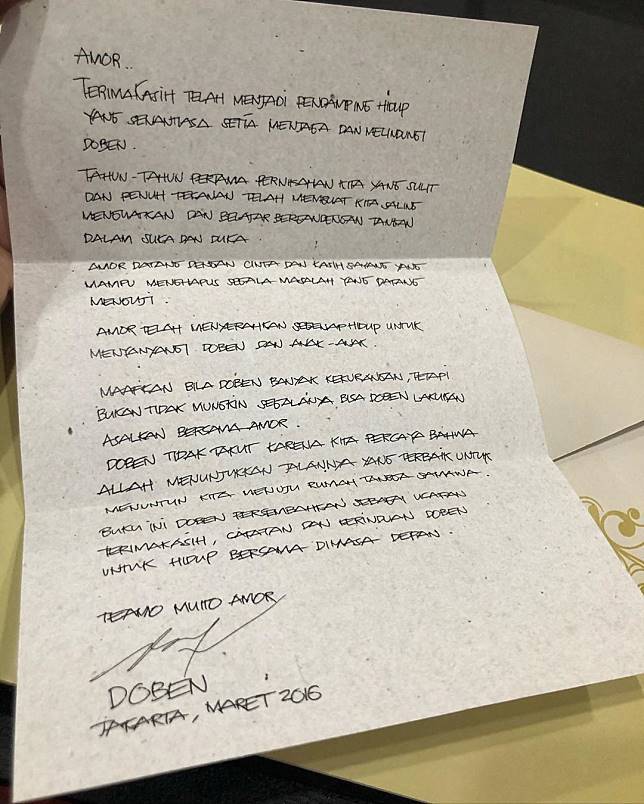 AMOR..
TERIMAKASIH TELAH MENJADI PENDAMPING HIDUP
YANG SENANTIASA SETIA MENJAGA DAN MELINDUNGI
DOBEN.
TAHUN-TAHUN PERTAMA PERNIKAHAN KITA YANG SULIT
DAN PENUH TEKANAN TELAH MEMBUAT KITA SALING
MENGUATKAN DAN BELAJAR BERGANDENGAN TANGAN
DALAM SUKA DAN DUKA
AMOR DATANG DENGAN CINTA DAN KASIH SAYANG YANG
MAMPU MENGHAPUS SEGALA MASALAH YANG DATANG
MENGUJI.
AMOR TELAH MENYERAHKAN SEGENAP HIDUP UNTUK
MENYANYANGI DOBEN DAN ANAK-ANAK.
MAAFKAN BILA DOBEN BANYAK KEKURANGAN, TETAPI
BUKAN TIDAK MUNGKIN SEGALANYA BISA DOBEN LAKUKAN
ASALKAN BERSAMA AMOR.
DOBEN TIDAK TAKUT KARENA KITA PERCAYA BAHWA
ALLAH MENUNJUKKAN JALANNYA YANG TERBAIK UNTUK
MENUNTUN KITA MENUJU RUMAH TANGGA SAMAWA.
BUKU INI DOBEN PERSEMBAHKAN SEBAGAI UCAPAN
TERIMAKASIH, CATATAN DAN KERINDUAN DOBEN
UNTUK HIDUP BERSAMA DIMASA DEPAN.
TEAMO MUITO AMOR
DOBEN
JAKARTA, MARET 2016